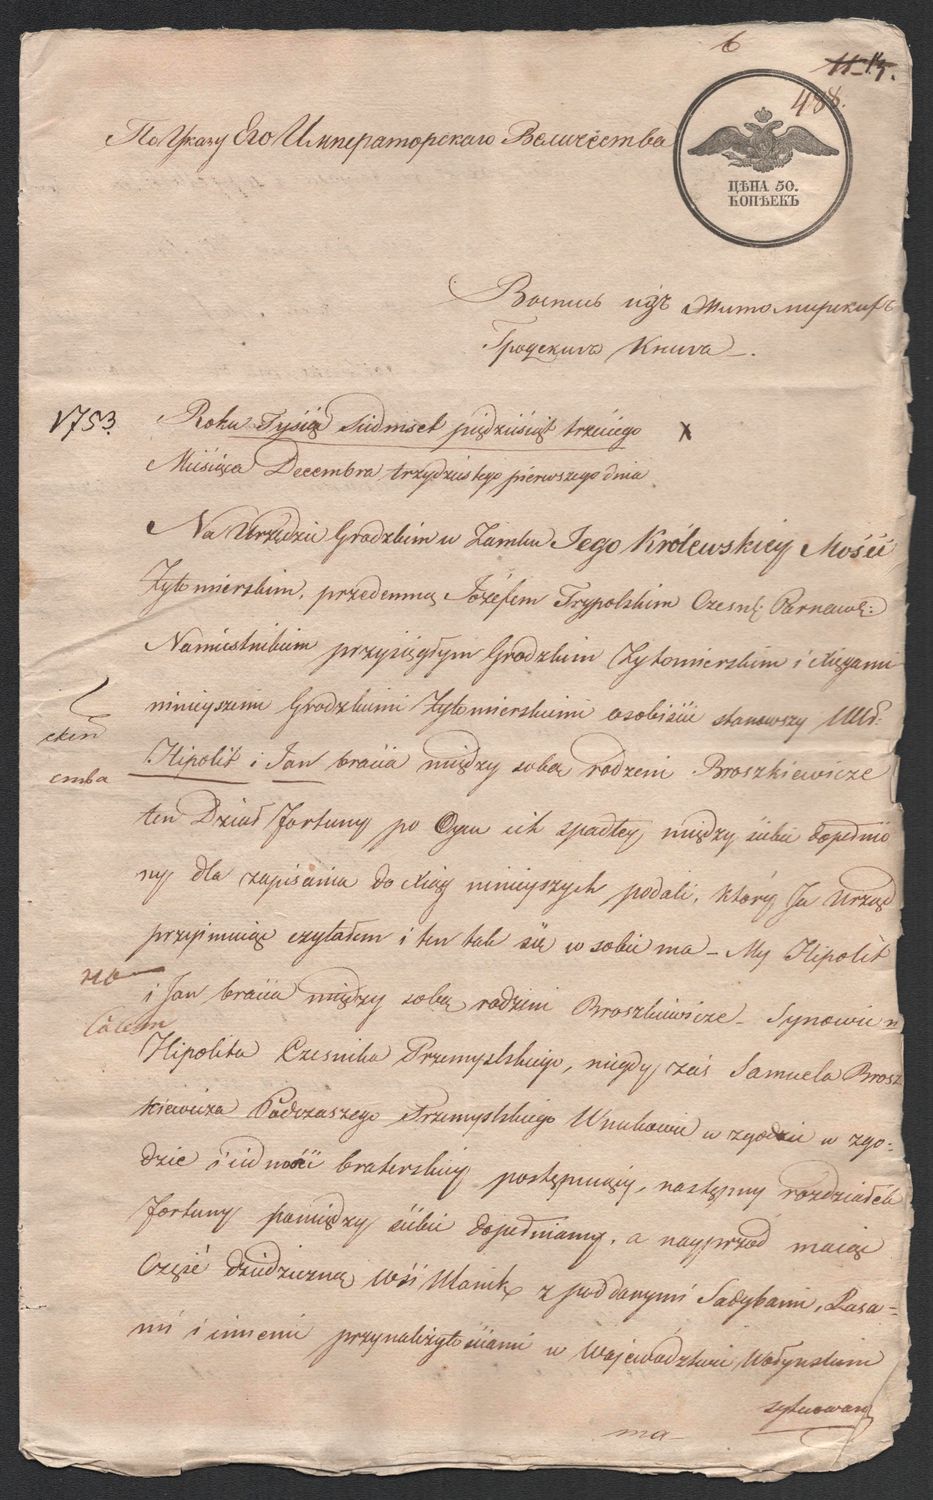 6
11-13.
488.
По Указу Его Императорскаго Величества
ЦѢНА 50.
КОПѢЕКЪ
Выпись изъ Житомирскихъ
Гродскихъ Книгъ.
1753.
Roku Tysiąc Siedmset piędziesiąt trzeciego
Miesiąca Decembra trzydziestego pierwszego dnia
Na Urzędzie Grodzkim w Zamku Jego Królewskiey Mości
Żytomierskim, przedemną Józefem Trypolskim Czesnk: Parnawk:
Namiestnikiem przysięgłym Grodzkim Żytomierskim i xięgami
ninieyszemi Grodzkiemi Żytomierskiemi osobiście stanowszy
Hipolit i Jan bracia między sobą rodzeni Broszkiewicze
ten Dział fortuny po Oycu ich spadłey, między siebie dopełnio
ny dla zapisania do xiąg ninieyszych podali, który Ja Urząd
przyimuiąc czytałem i ten tak się w sobie ma – My Hipolit
i Jan bracia między sobą rodzeni Broszkiewicze – Synowie n
Hipolita Czesnika Przemyslskiego, niegdy zaś Samuela Brosz
kiewicza Podczaszego Przemyslskiego Wnukowie w zgodzie w zgo-
dzie i iedności braterskiey postępuiąc, następny rozdziałek
fortuny pomiędzy siebie dopełniamy, a nayprzód maiąc
Część dziedziczną Wsi Ulanik z poddanymi Sadybami, Pasa-
mi i innemi przynależytościami w Województwie Wołynskim
sytuowaną
ma